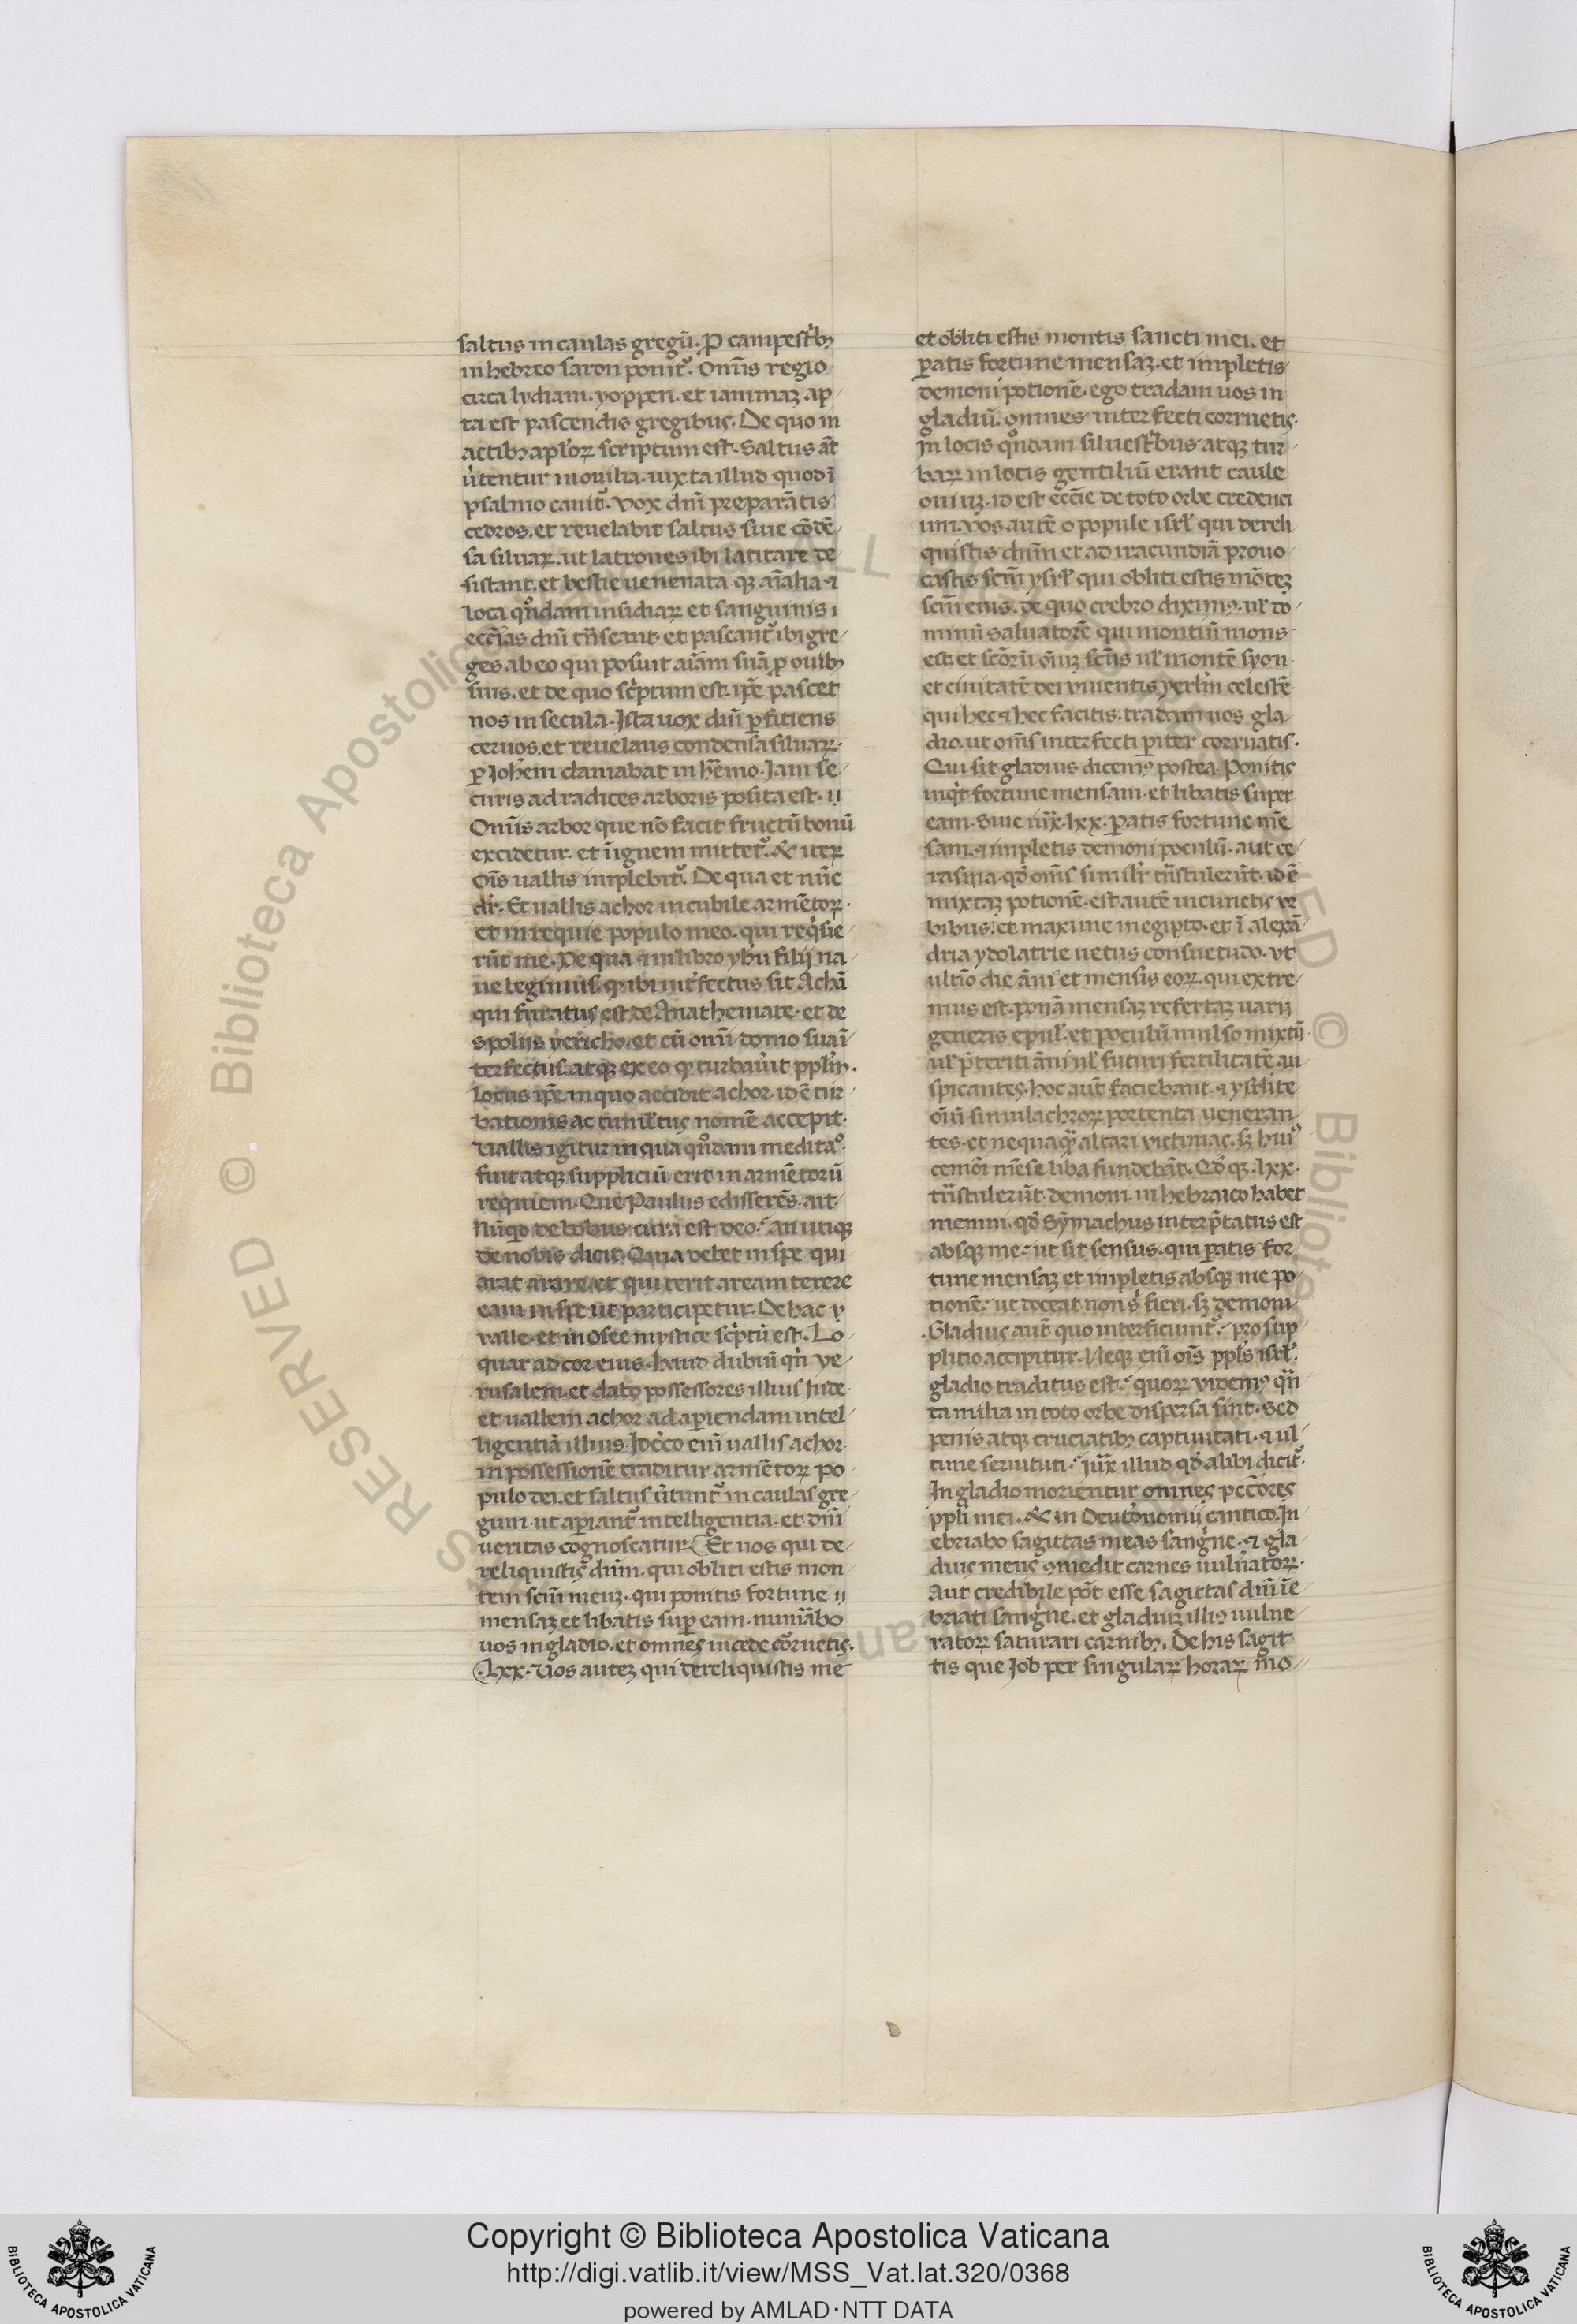 saltus in caulas gregū. ꝓ campestͥbꝫ
in hebreo saron ponit᷑. Omīs regio
circa lydiam. yoppen. et iamnaꝫ ap
ta est pascendis gregibus. De quo in
actibꝫ aplōꝝ scriptum est. Saltus āt
u̇tentur in ouilia. iuxta illud quod ī
psalmo canit᷑. Vox dnī preparātis
cedros. et reuelabit saltus siue cōdē
sa siluaꝝ. ut latrones ibi latitare de
sistant. et bestie uenenata qꝫ aīalia ⁊
loca qͦndam insidiaꝝ et sanguinis i
ecc̄ias dnī tͣnseant. et pascant᷑ ibi gre
ges ab eo qui posuit aīam suā ꝓ ouibꝫ
suis. et de quo scͥptum est. ip̄e pascet
nos in secula. Ista uox dnī ꝑficiens
ceruos. et reuelans condensa siluaꝝ.
ꝑ Joh̄em clamabat in h̄emo. Jam se
curis ad radices arboris posita est.
Omīs arbor que nō facit fructū bonū
excidetur. et ī ignem mittet᷑. & iteꝝ
Oīs uallis implebit᷑. De qua et nūc
dr̄. Et uallis achor in cubile armētoꝝ.
et in requie populo meo. qui reqͥsie
rūt me. De qua ⁊ in libro yh̄u filij na
ue legimus. ꝙ ibi int᷑fectus sit Achā
qui furatus est de Anathemate. et de
spolijs yericho. et cū omī domo sua ī
terfectus. atqꝫ ex eo ꝙ turbauit pplm̄.
locus ip̄e in quo accidit achor. id ē tur
bationis ac tumultus nomē accepit.
Uallis igitur in qua qͦndam meditaͦ.
fuit atqꝫ suppliciū erit in armētorū
requiem. Que Paulus edisserēs. ait.
Nūqd de bobus cura est deo. an utiqꝫ
de nobis dicit. Quia debet in spe qui
arat arare. et qui terit aream terere
eam in spe ut participetur. De hac y
valle. et in Osee mystice scͥptū est. Lo
quar ad cor eius. haud dubiū qn̄ ye
rusalem. et dabo possessores illius Inde
et uallem achor ad aperiendam intel
ligentiā illius. Jdcͥco eni uallis achor
in possessionē traditur armētoꝝ po
pulo dei. et saltus u̇tunt᷑ in caulas gre
gum. ut aꝑiant᷑ intelligentia. et dnī
ueritas cognoscatur. Et uos qui de
reliquistis dnm̄. qui obliti estis mon
tem scm̄ meuꝫ. qui ponitis fortune
mensaꝫ et libatis suꝑ eam. numābo
uos in gladio. et omnes in cede cōruetis.
.lxx. Vos auteꝫ qui dereliquistis me
et obliti estis montis sancti mei. et
ꝑatis fortune mensaꝫ. et impletis
demoni potionē. ego tradam uos in
gladiū. omnes interfecti corruetis.
Jn locis qͦndam siluestͥbus atqꝫ tur
baꝝ in locis gentiliū erant caule
ouiuꝫ. id est ecc̄ie de toto orbe credenci
um. Vos autē o popule isrl̄ qui dereli
quistis dnm̄ et ad iracundiā prouo
castis scm̄ ysrl̄ qui obliti estis mōteꝫ
scm̄ eius. de quo crebro diximꝰ. ul̄ do
minū saluatorē qui montiū mons
est. et scōrū oīuꝫ scūs ul̄ montē syon
et ciuitatē dei viuentis yerlm̄ celestē
qui hec ⁊ hec facitis. tradam uos gla
dio. ut om̄s interfecti ꝑiter corruatis.
Qui sit gladius dicemꝰ postea. Ponitis
inqͥt fortune mensam. et libatis super
eam. Siue iux̄. lxx. ꝑatis fortune mē
sam. ⁊ impletis demoni poculū. aut ce
rasma. qd̄ om̄s similr̄ tͣnstulerūt. id ē
mixtaꝫ potionē. est autē in cunctis vr
bibus. et maxime in egipto. et ī alexā
dria ydolatrie uetus consuetudo. ut
ultīo die āni et mensis eoꝝ. qui extre
mus est. ponā mensaꝫ refertaꝫ uarij
generis epul̄. et poculū mulso mixtū.
ul̄ p̄teriti āni ul̄ futuri fertilitatē au
spicantes. hoc aut̄ faciebant. ⁊ ysrl̄ite
oīū simulachroꝝ portenta ueneran
tes. et nequaqͣꝫ altari victimas. sꝫ huiꝰ
cemōi mēse liba fundebāt. Qd̄ qꝫ .lxx.
tͣnstulerūt demoni. in hebraico habet
memni. qd̄ Sȳmachus interp̄tatus est
absqꝫ me. ut sit sensus. qui ꝑatis for
tune mensaꝫ et impletis absqꝫ me po
tionē. ut doceat non s̄ fieri. sꝫ demoni
.Gladius aut̄ quo interficiunt᷑. pro sup
plitio accipitur. Neqꝫ eni oīs ppls̄ isrl̄.
gladio traditus est. quoꝝ videmꝰ qn̄
ta milia in toto orbe dispersa sint. Sed
penis atqꝫ cruciatibꝫ captiuitati. ⁊ ul
time seruituti. iux̄ illud qd̄ alibi dicit᷑.
In gladio morientur omnes pcc̄ores
ppli mei. & in Deut᷑onomij cantico. Jn
ebriabo sagittas meas sangͥne. ⁊ gla
dius meus ꝯmedit carnes uulnatoꝝ.
Aut credibile pōt esse sagittas dnī īe
briati sangͥne. et gladiuꝫ illiꝰ uulne
ratoꝝ saturari carnibꝫ. De his sagit
tis que Job per singulaꝝ horaꝝ mo